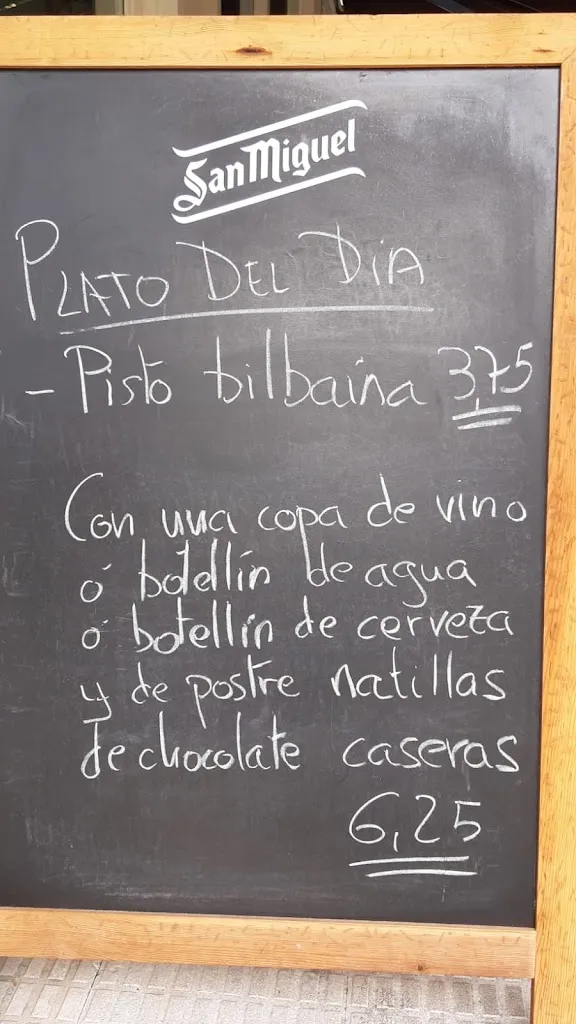 San Miguel
PLATO DEL DiA
- Pisto bilbaina 3,75
Con una copa de vino
ó botellín de agua
ó botellín de cerveza
y de postre natillas
de chocolate caseras
6,25